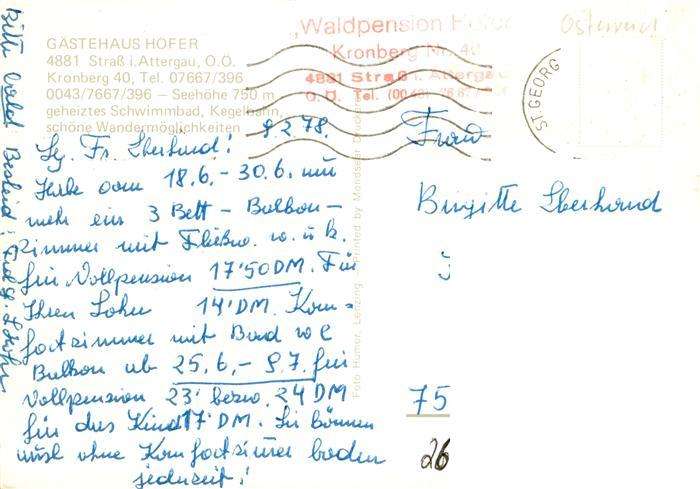 GÄSTEHAUS HOFER
4881 Straß i. Attergau, O.Ö.
Kronberg 40, Tel. 07667/396
0043/7667/396 – Seehöhe 750 m
geheiztes Schwimmbad, Kegelbahn,
schöne Wandermöglichkeiten
„Waldpension Hofer
Kronberg Nr. 40
4881 Straß i. Attergau
O. Ö. Tel.
Österreich
ST. GEORG
9.2.78.
Sg. Fr. Eberhard!
Habe vom 18.6. - 30.6. nur
mehr ein 3 Bett - Balkon -
zimmer mit Fließw. w. u. k.
für Vollpension 17'50 DM. Für
Ihren Sohn 14' DM. Kom-
fortzimmer mit Bad
Balkon ab 25.6. - 9.7. für
Vollpension 23' bezw. 24 DM
für das Kind 17' DM. Sie können
auch ohne Komfortzimmer baden
jederzeit!
Bitte bald Bescheid!
Frau
Birgitte Eberhard
75
26
Foto Humer, Lenzing
Printed by